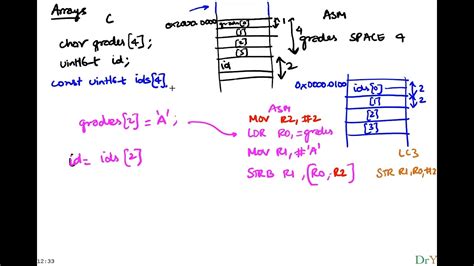 Arrays
C
ASM
char grades[4];
uint16-t id;
const uint16-t ids[4]
0x2000.0000
grades[0]
[1]
[2]
[3]
id
1
4
2
grades SPACE 4
0x0000.0100
ids[0]
[1]
[2]
[3]
2
2
grades[2] = 'A';
id = ids[2]
ASM
MOV R2, #2
LDR R0, =grades
MOV R1, #'A'
STRB R1, [R0, R2]
LC3
STR R1, R0, #2
12:33
DrY